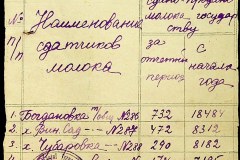 № п/п
Наименование
сдатчиков
молока
молока государ
ству
за
отчетный
период
с
начала
года
1. Богдановка № 286 732 18484
2. х. Вин. Сад - - № 287 472 8312
3. х. Чубаровка - - № 288 290 8182